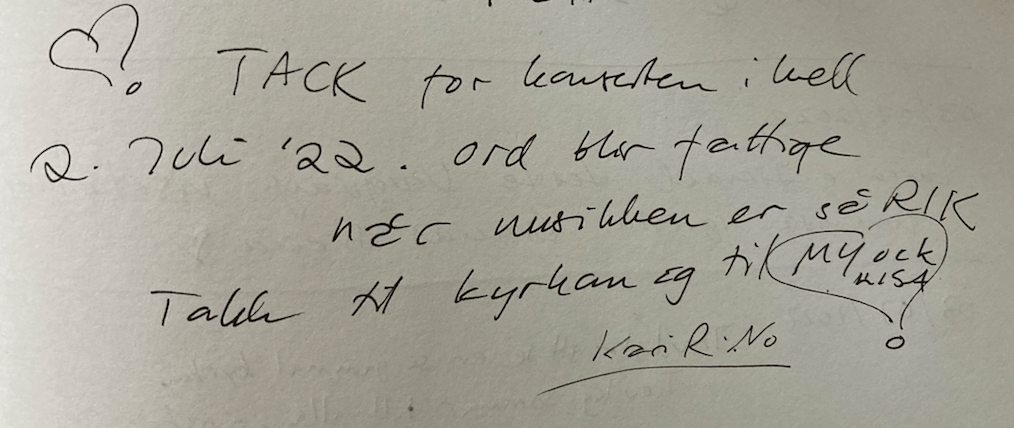 TACK for konserten i kvell
2. Juli '22. ord blir fattige
når musikken er så RIK
Takk til kyrkan og til MY ock
LISA
Kari R. No